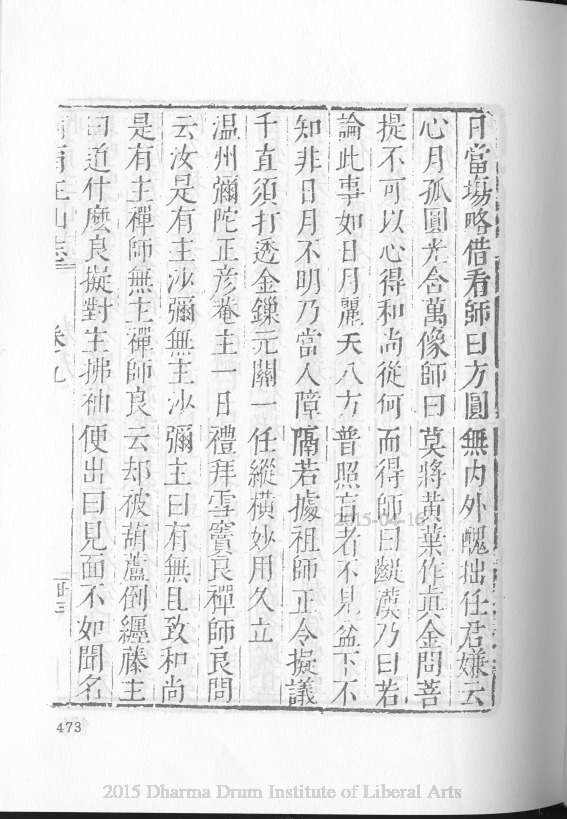 日當塲略借看師曰方圓無内外醜拙任君嫌云
心月孤圓光含萬像師曰莫將黃葉作眞金問菩
提不可以心得和尚從何而得師曰齪漢乃曰若
論此事如日月麗天八方普照盲者不見盆下不
知非日月不明乃當人障隔若據祖師正令擬議
千直須打透金鏁元關一任縱橫妙用久立
温州彌陀正彦菴主一日禮拜雪竇良禪師良問
云汝是有主沙彌無主沙彌主曰有無且致和尚
是有主禪師無主禪師良云却被葫蘆倒纏藤主
曰道什麽良擬對主拂袖便出曰見面不如聞名
山志 卷九
473
2015-04-16
2015 Dharma Drum Institute of Liberal Arts